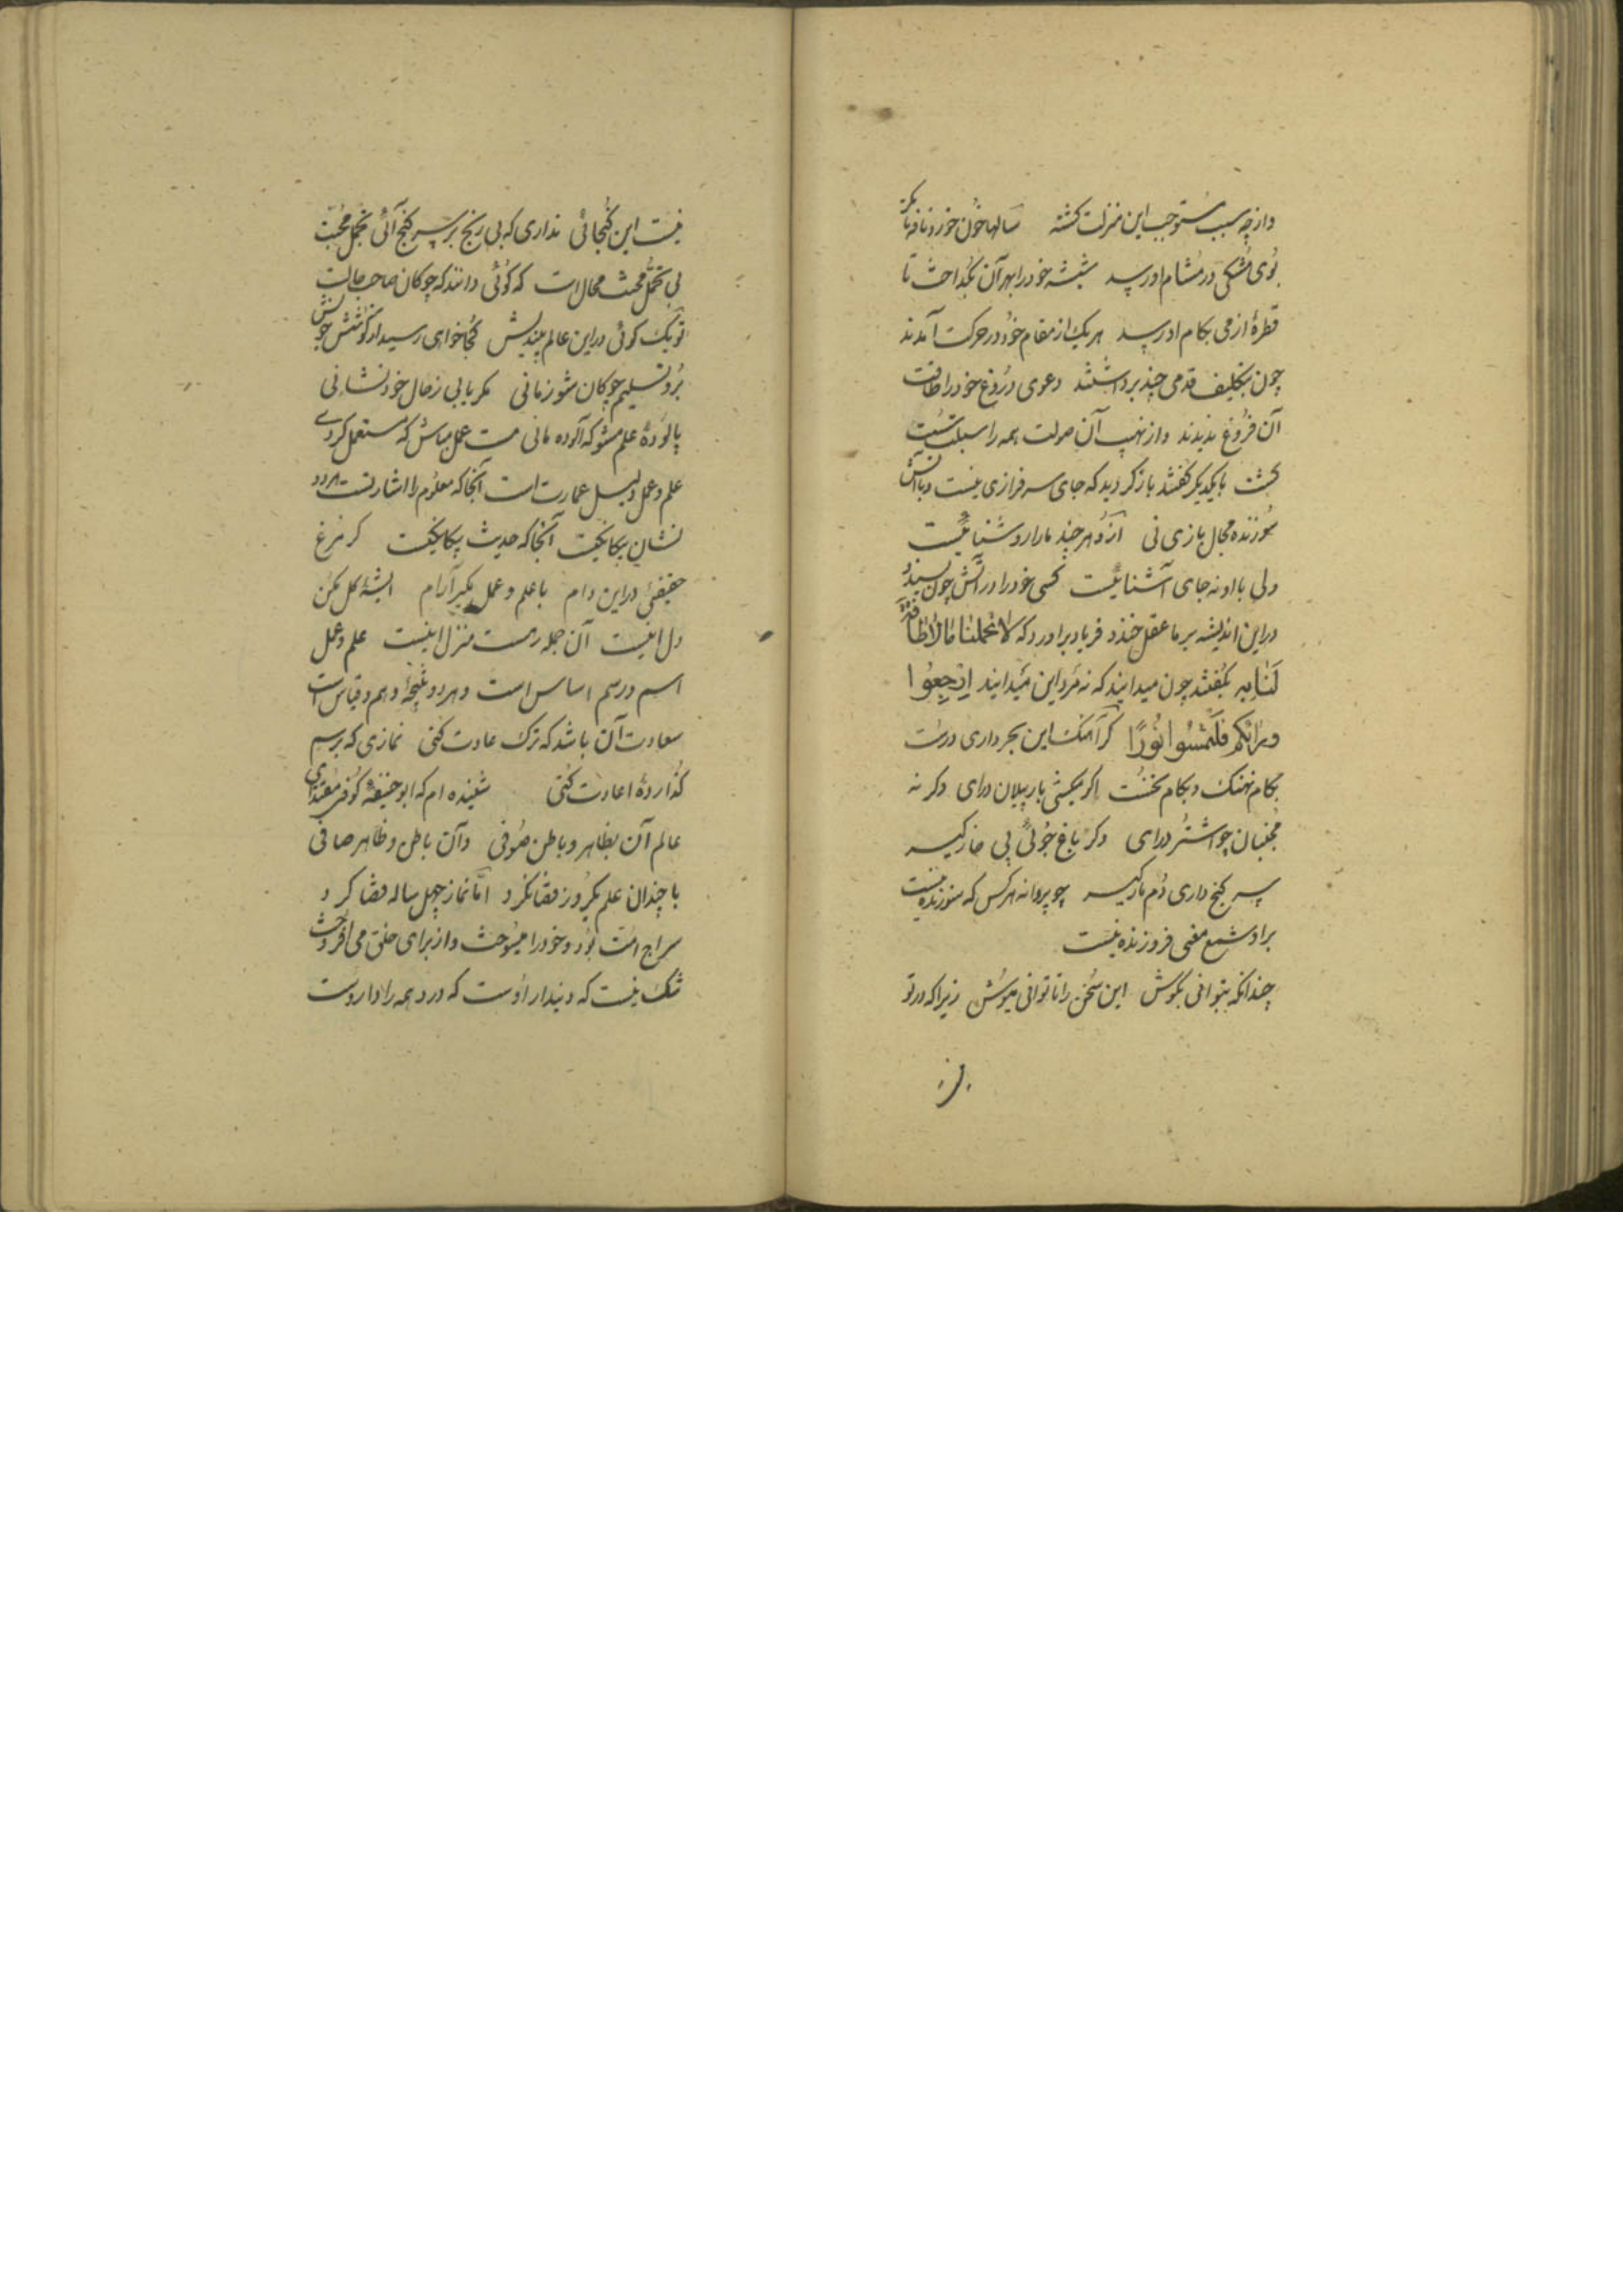 وازچه سبب مستوجب این منزلت کشته سالها خون خورد نافه تا
بوی مشکی در مشام اورسد شیشه خود را بهر آن بکداخت تا
قطرهٔ ازمی بکام اورسد هر یک از مقام خود در حرکت آمدند
چون بتکلیف قدمی چند برداشتند دعوی دروغ خود را طاقت
آن فروغ ندیدند واز نهیب آن صولت همه را سبلت سست
کشت با یکدیکر کفتند باز کردید که جای سرفرازی نیست وبا آتش
سوزنده مجال بازی نی ازو هر چند مارا روشنائیست
ولی با او نه جای آشنائیست کسی خود را در آتش چون سپند
دراین اندیشه بر ما عقل خندد فریاد براورد که لا تحملنا مالا طاقة
لنا به بکفتند چون میدانید که نه مرد این میدانید ارجعوا
ورائکم فلتمسوا نورا کر آهنک این بحر داری درست
بکام نهنک وبکام نخست اکر میکشی بار پیلان درای وکر نه
مجنبان چو اشتر درای وکر باغ جوئی پی خار کیر
سر کنج داری دم مار کیر چو پروانه هر کس که سوزنده نیست
براو شمع معنی فروزنده نیست
چندانکه بتوانی بکوش این سخن را تا توانی بنوش زیرا که در تو
نیست این کنجائی نداری که بی رنج بر سر کنج آئی تجمل محبت
بی تحمل محنت محال است که کوئی دانند که چوکان صاحب حالت
تو یک کوئی دراین عالم بیندیش کجا خواهی رسید از کوشش خویش
برو تسلیم چوکان شو زمانی مکر یابی زحال خود نشانی
پالودهٔ علم مشو که آلوده مانی مست عمل مباش که مستعمل کردی
علم وعمل دلیل عمارت است آنجا که معلوم را اشارتست هر دو
نشان بیکانکیت آنجا که حدیث یکانکیت کر مرغ
حقیقی دراین دام با علم وعمل مکیر آرام اندیشهٔ کل مکن
دل اینست آن جمله رهست منزل اینست علم وعمل
اسم ورسم اساس است وهردو نتیجهٔ وهم وقیاس است
سعادت آن باشد که ترک عادت کنی نمازی که برسم
کذاردهٔ اعادت کنی شنیده ام که ابو حنیفهٔ کوفی مقتدای
عالم آن بظاهر وباطن صوفی وآن باطن وظاهر صافی
با چندان علم یکروز قضا نکرد اما نماز چهل ساله قضا کرد
سراج امت بود وخود را میسوخت واز برای خلق می افروخت
شک نیست که دیندار اوست که درد همه را داروست